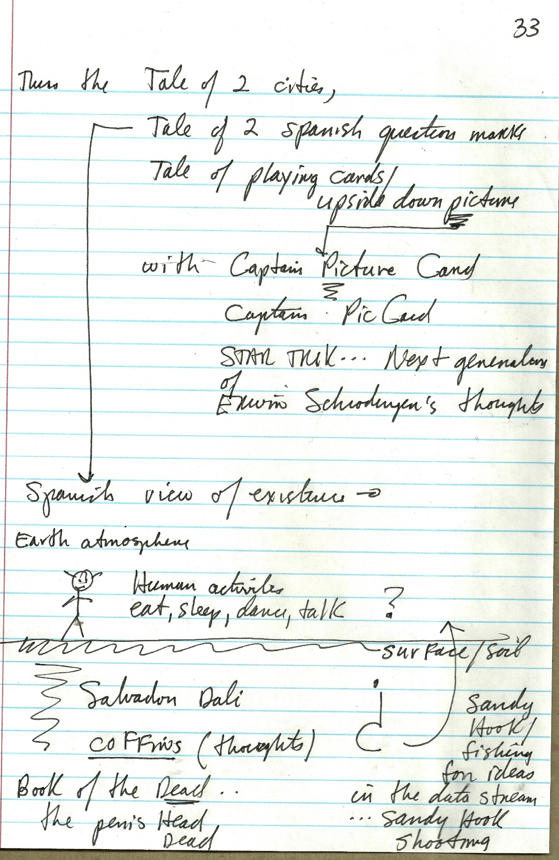 33
Thus the Tale of 2 cities,
Tale of 2 spanish question marks
Tale of playing cards/
upside down picture
with Captain Picture Card
Captain PicCard
STAR TREK... Next generation
of
Erwin Schrodinger's thoughts
Spanish view of existence →
Earth atmosphere
Human activites
eat, sleep, dance, talk ?
surface/soil
Salvador Dali ¿
COFFINS (thoughts)
Sandy
Hook/
fishing
for ideas
Book of the Dead .. in the data stream
the penis Head ... Sandy Hook
Dead shooting